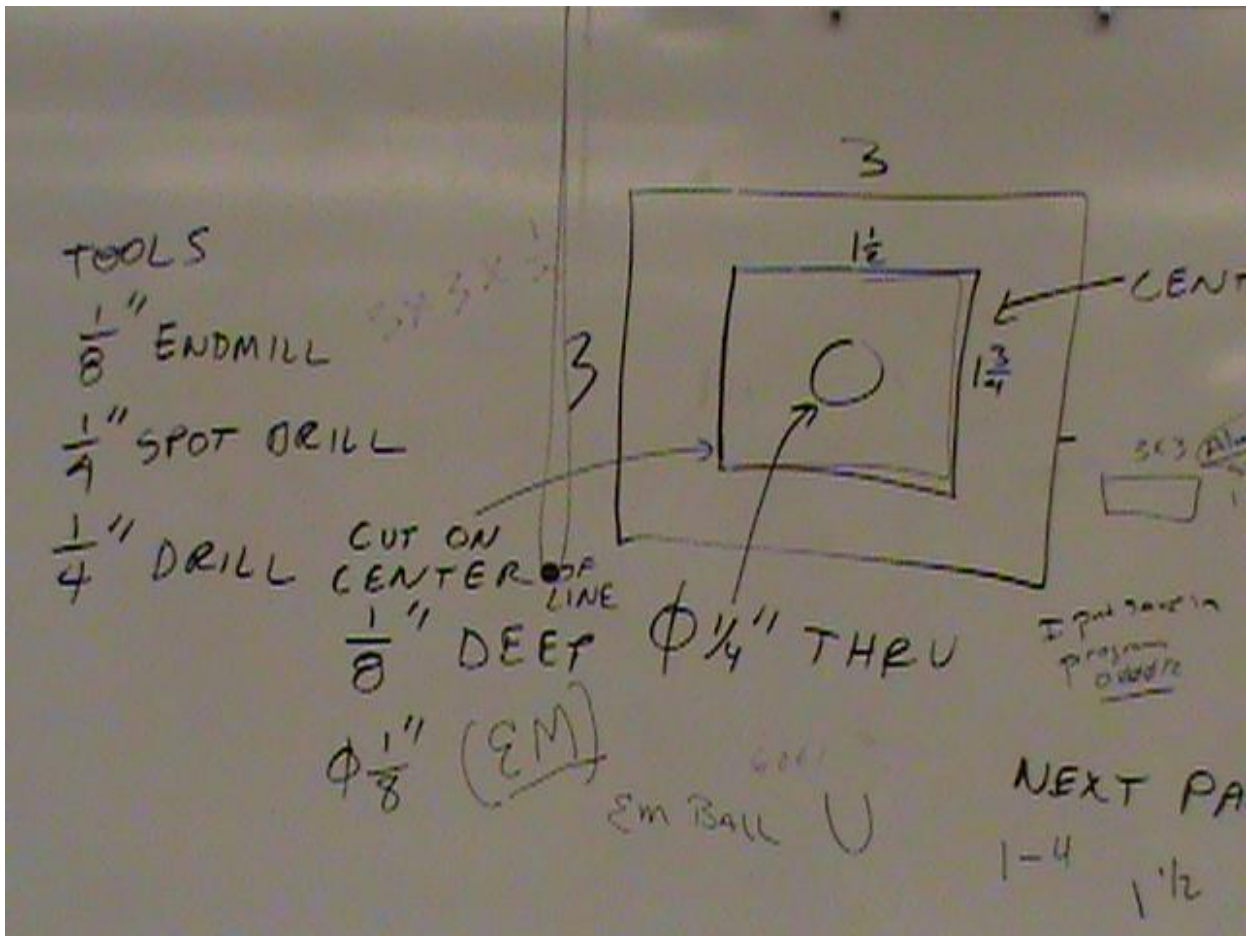 TOOLS
1/8" ENDMILL
1/4" SPOT DRILL
1/4" DRILL
3
3
1 1/2
1 3/4
CENT
CUT ON
CENTER OF
LINE
1/8" DEEP
Φ 1/4" THRU
Φ 1/8" (EM)
EM BALL U
3x3
I put same in
program
NEXT PA
1-4
1 1/2